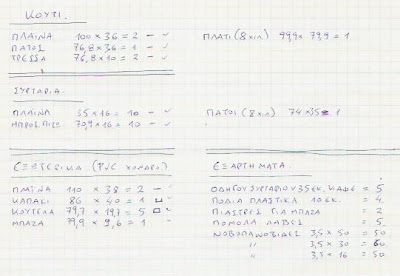 ΚΟΥΤΙ.
ΠΛΑΪΝΑ 100 × 36 = 2 –
ΠΑΤΟΣ 76,8 × 36 = 1 –
ΤΡΕΣΣΑ 76,8 × 10 = 2 –
ΠΛΑΤΗ (8 χιλ) 99,9 × 79,9 = 1
ΣΥΡΤΑΡΙΑ
ΠΛΑΪΝΑ 35 × 16 = 10 –
ΜΠΡΟΣ ΠΙΣΩ 70,9 × 16 = 10 –
ΠΑΤΟΙ (8 χιλ) 74 × 35 = 1
ΕΞΩΤΕΡΙΚΑ (PVC ΧΟΝΔΡΟ)
ΠΛΑΪΝΑ 110 × 38 = 2 –
ΚΑΠΑΚΙ 86 × 40 = 1
ΚΟΥΤΕΛΑ 79,7 × 19,7 = 5
ΜΠΑΖΑ 79,9 × 9,6 = 1 –
ΕΞΑΡΤΗΜΑΤΑ.
ΟΔΗΓΟΥ ΣΥΡΤΑΡΙΟΥ 35 εκ. = 5
ΠΟΔΙΑ ΠΛΑΣΤΙΚΑ 10 εκ. = 4
ΠΙΑΣΤΡΕΣ ΓΙΑ ΜΠΑΖΑ = 2
ΠΟΜΟΛΑ ΛΑΒΕΣ = 5
ΝΟΒΟΠΑΝΟΒΙΔΕΣ 3,5 × 50 = 50
" 3,5 × 30 = 60
" 3,5 × 16 = 50